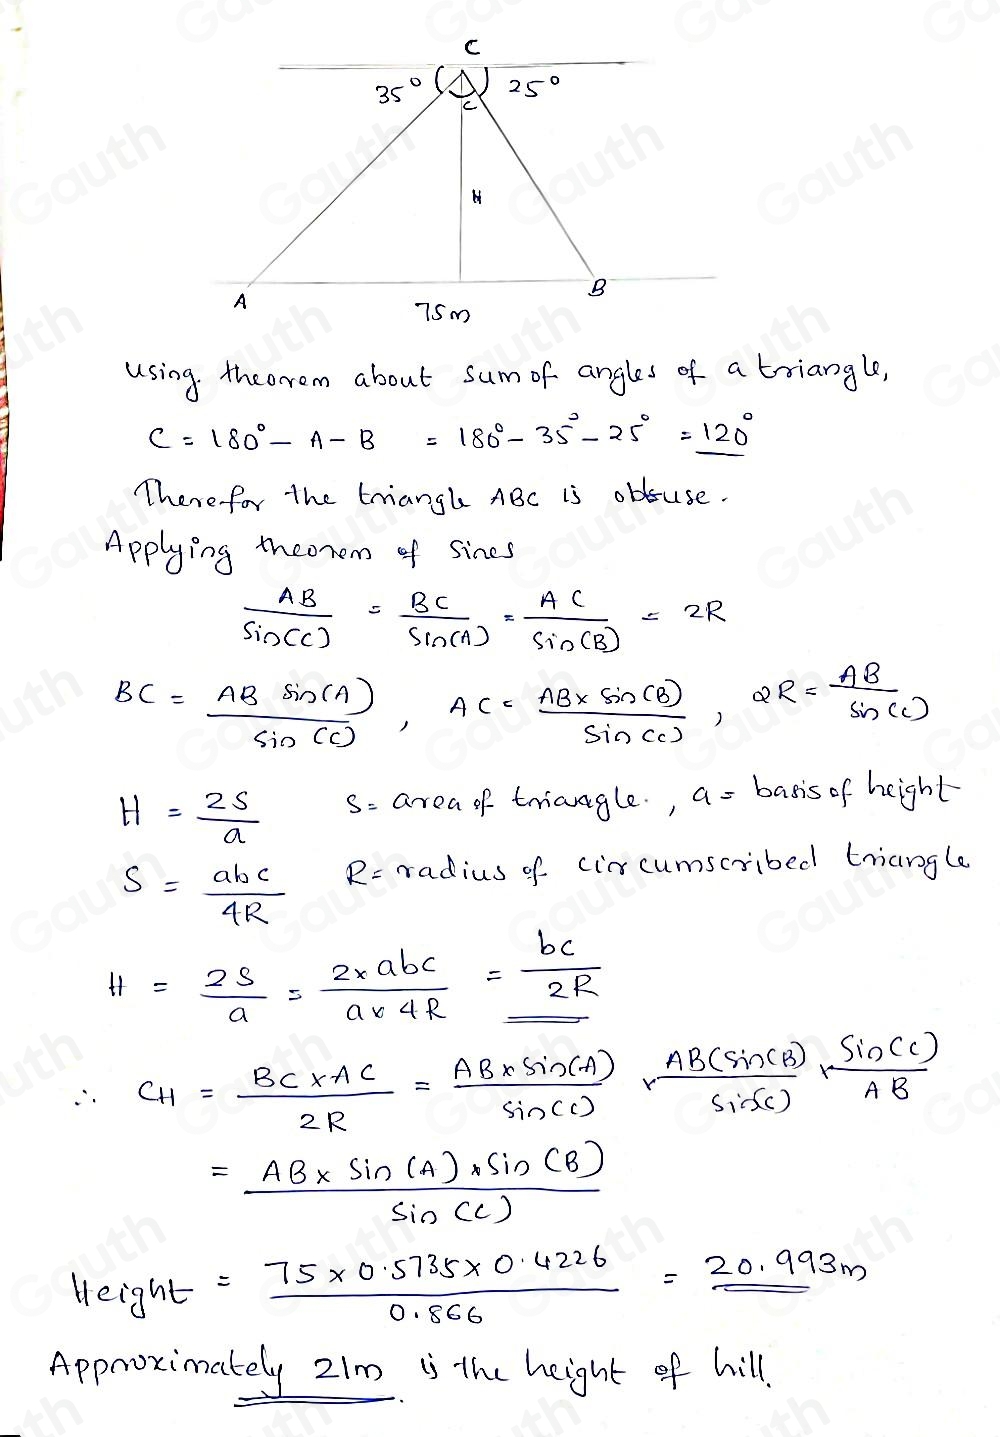 C
35° 25°
C
H
A B
75m
Using theorem about sum of angles of a triangle,
C = 180° - A - B = 180° - 35° - 25° = 120°
Therefor the triangle ABC is obtuse.
Applying theorem of sines
AB/Sin(C) = BC/Sin(A) = AC/Sin(B) = 2R
BC = AB Sin(A)/Sin(C), AC = AB × Sin(B)/Sin(C), 2R = AB/Sin(C)
H = 2S/a S = area of triangle., a = basis of height
S = abc/4R R = radius of circumscribed triangle
H = 2S/a = 2×abc/a×4R = bc/2R
∴ CH = BC×AC/2R = AB×Sin(A)/Sin(C) × AB(Sin(B)/Sin(C) × Sin(C)/AB
= AB × Sin(A) × Sin(B)/Sin(C)
Height = 75×0.5735×0.4226/0.866 = 20.993m
Approximately 21m is the height of hill.